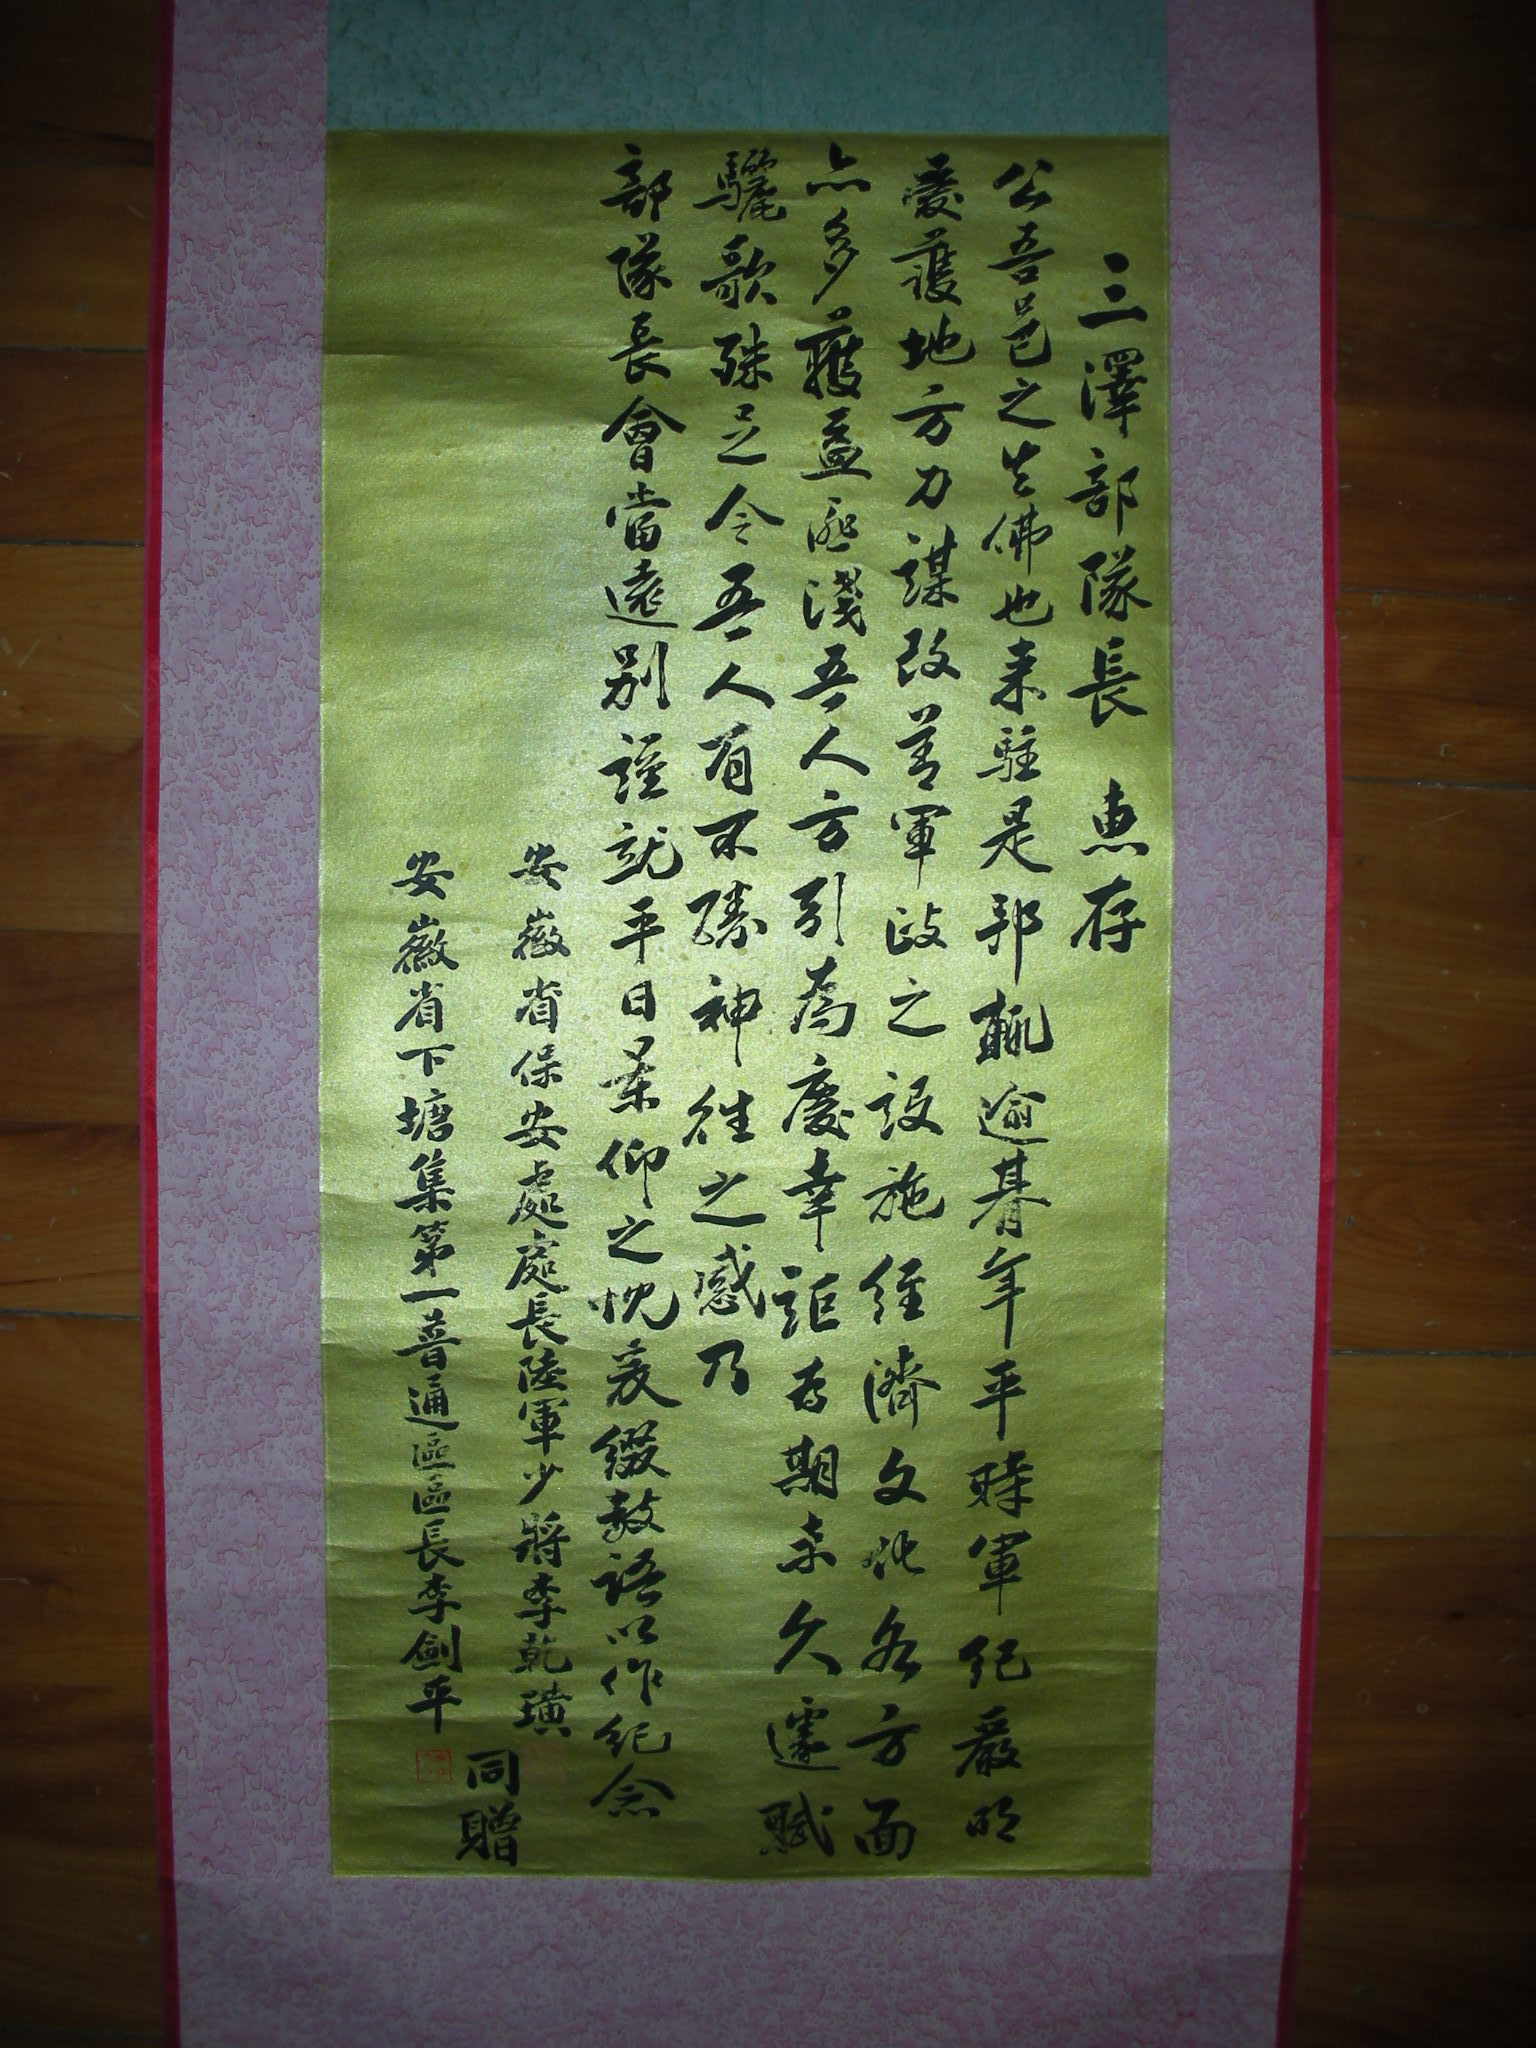 三澤部隊長 惠存
公吾邑之生佛也来駐是邦輒逾朞年平時軍紀嚴明
愛護地方力謀改善軍政之設施經濟文化各方面
亦多獲益匪淺吾人方引為慶幸詎為期未久遽賦
驪歌殊足令吾人有不勝神往之感乃
部隊長會當遠別謹就平日景仰之忱爰綴数語以作紀念
安徽省保安處處長陸軍少將李乾璜
安徽省下塘集第一普通區區長李劍平
同贈